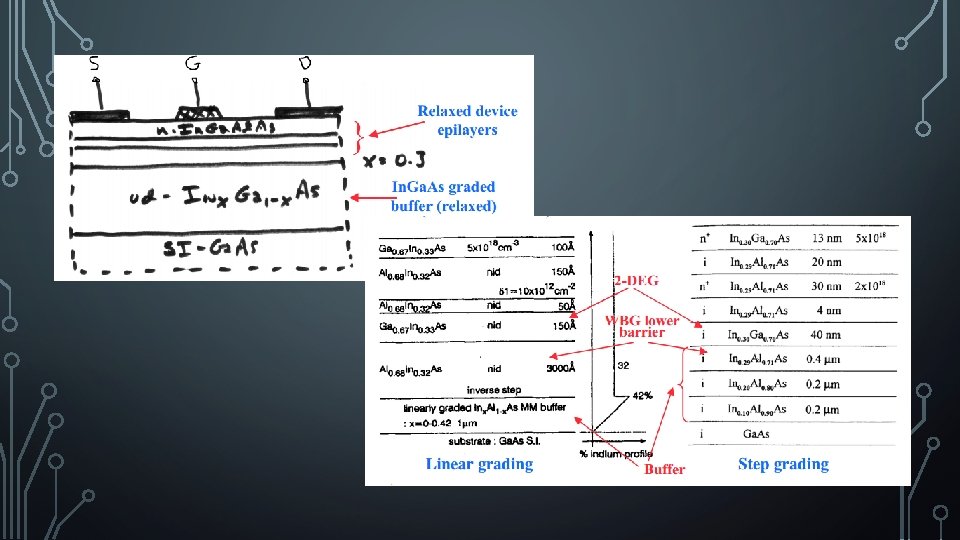 S G D
n-InGaAlAs
Relaxed device
epilayers
x = 0.3
In.Ga.As graded
buffer (relaxed)
ud- InxGa1-xAs
SI-GaAs
Ga0.67In0.33As 5x10^18cm^-3 100Å
Al0.68In0.32As nid 150Å
δ1=10x10^12cm^-2
Al0.68In0.32As nid 50Å
Ga0.67In0.33As nid 150Å
Al0.68In0.32As nid 3000Å
inverse step
linearly graded InxAl1-xAs MM buffer
: x=0-0.42 1µm
substrate : GaAs S.I.
Linear grading
2-DEG
WBG lower
barrier
32
42%
% indium profile
Buffer
n+ In0.30Ga0.70As 13 nm 5x10^18
i In0.29Al0.71As 20 nm
n+ In0.29Al0.71As 30 nm 2x10^18
i In0.29Al0.71As 4 nm
i In0.30Ga0.70As 40 nm
i In0.29Al0.71As 0.4 µm
i In0.20Al0.80As 0.2 µm
i In0.10Al0.90As 0.2 µm
i GaAs
Step grading